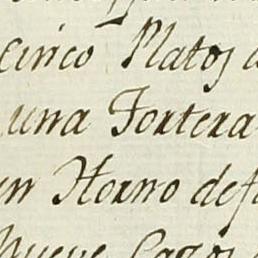 Cinco Platos
una Tortera
un Horno de
Nueve Cazos